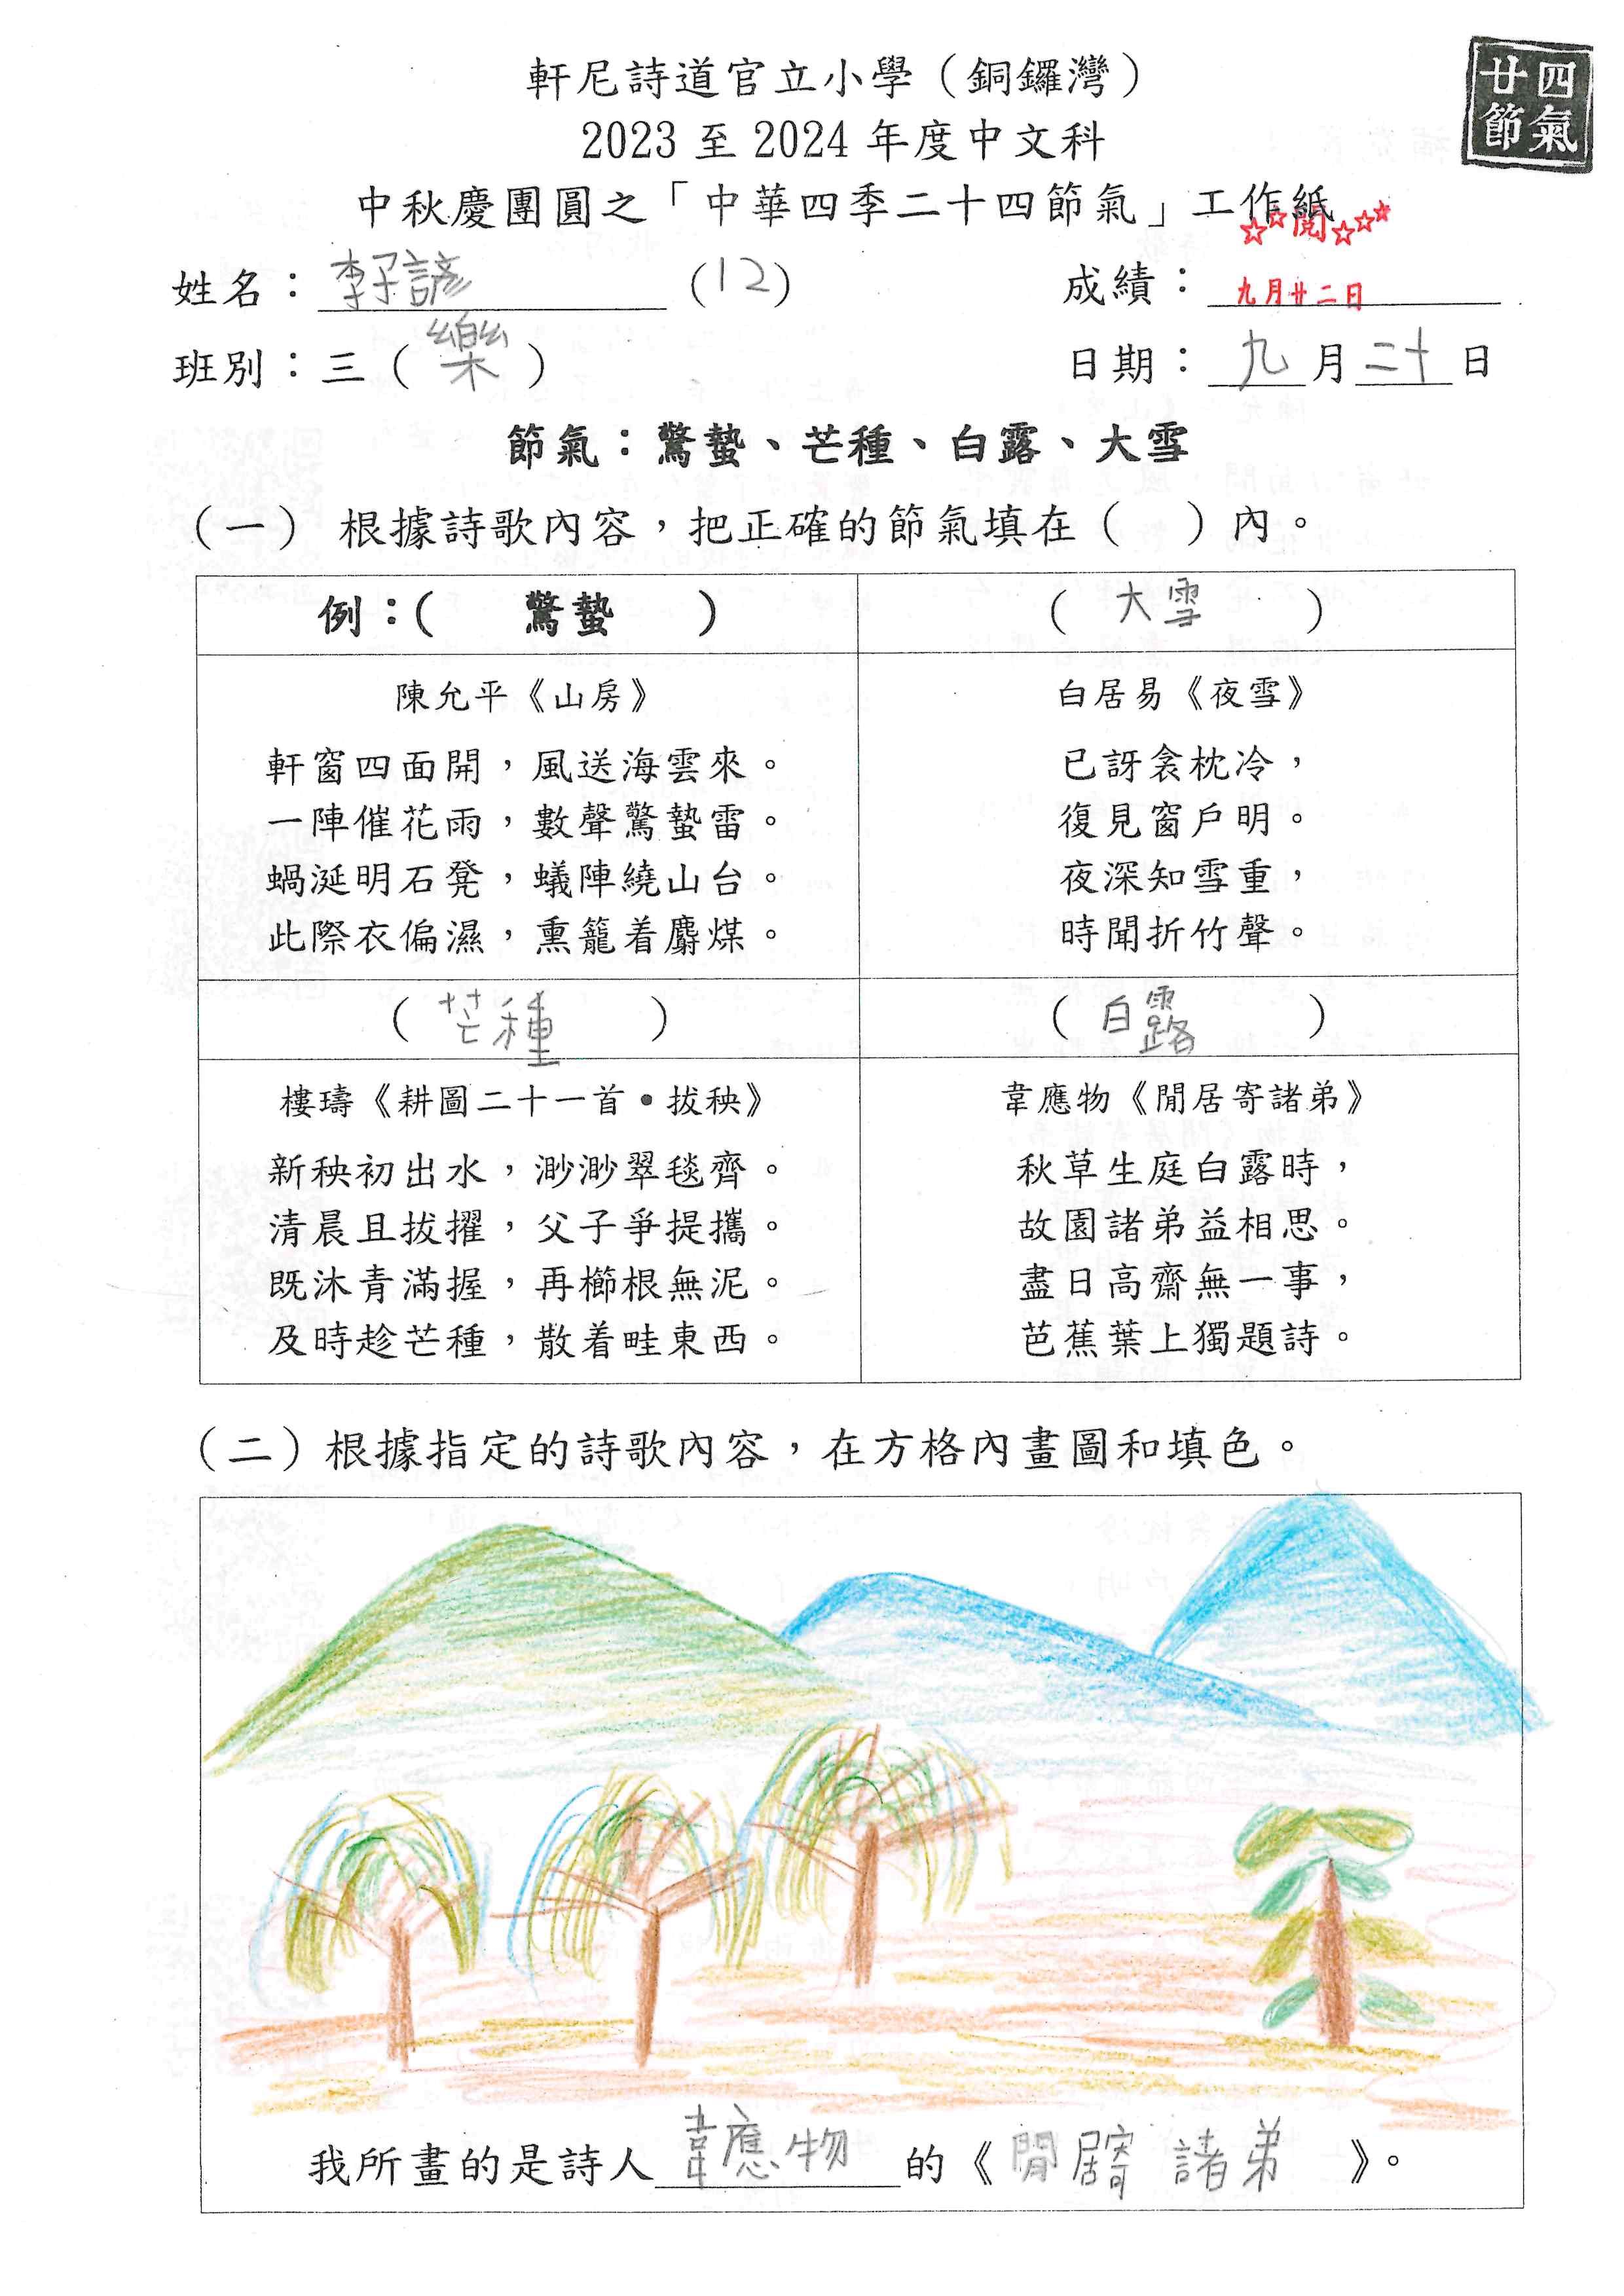 廿四
節氣
軒尼詩道官立小學（銅鑼灣）
2023 至 2024 年度中文科
中秋慶團圓之「中華四季二十四節氣」工作紙
☆☆閱☆☆☆
姓名：李子諺（12） 成績：九月廿二日
班別：三（樂） 日期：九月二十日
節氣：驚蟄、芒種、白露、大雪
（一） 根據詩歌內容，把正確的節氣填在（ ）內。
例：（ 驚蟄 ）
陳允平《山房》
軒窗四面開，風送海雲來。
一陣催花雨，數聲驚蟄雷。
蝸涎明石凳，蟻陣繞山台。
此際衣偏濕，熏籠着麝煤。
（ 大雪 ）
白居易《夜雪》
已訝衾枕冷，
復見窗戶明。
夜深知雪重，
時聞折竹聲。
（ 芒種 ）
樓璹《耕圖二十一首•拔秧》
新秧初出水，渺渺翠毯齊。
清晨且拔擢，父子爭提攜。
既沐青滿握，再櫛根無泥。
及時趁芒種，散着畦東西。
（ 白露 ）
韋應物《閒居寄諸弟》
秋草生庭白露時，
故園諸弟益相思。
盡日高齋無一事，
芭蕉葉上獨題詩。
（二）根據指定的詩歌內容，在方格內畫圖和填色。
我所畫的是詩人韋應物的《閒居寄諸弟》。